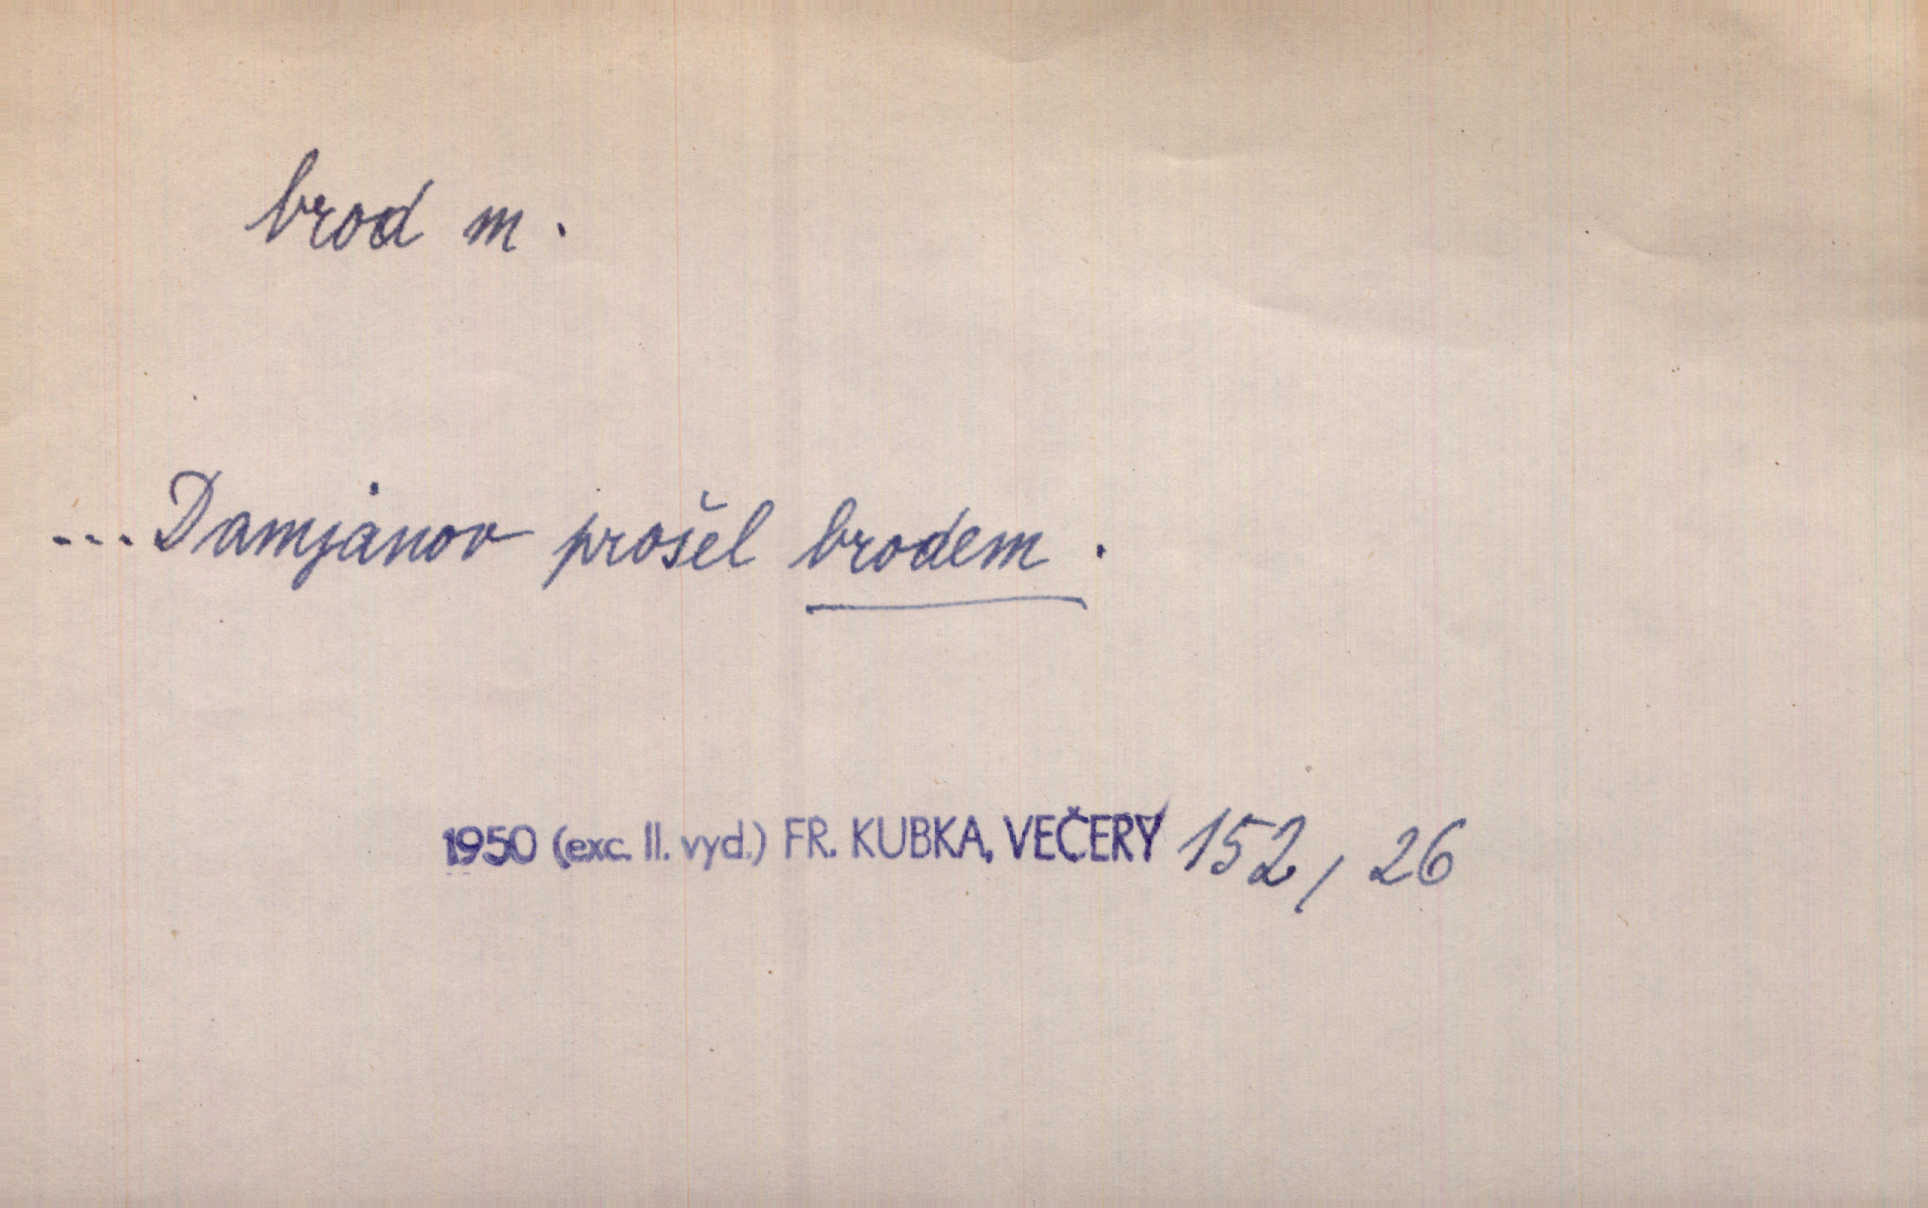 brod m.
... Damjanov prošel brodem.
1950 (exc. II. vyd.) FR. KUBKA, VEČERY 152, 26